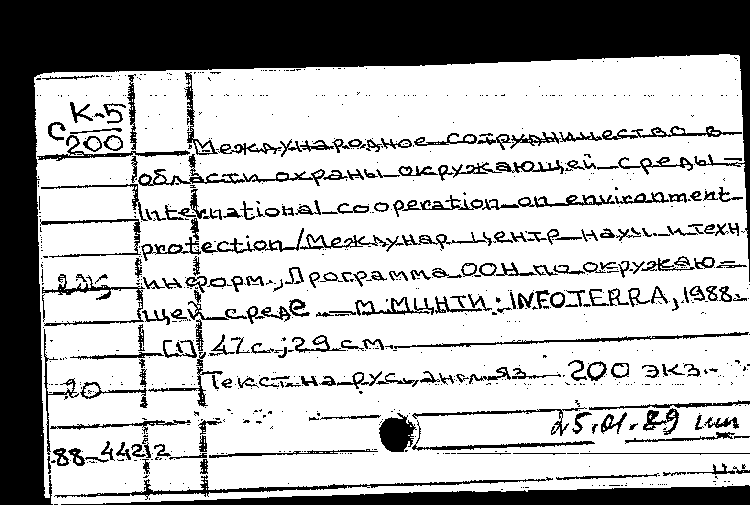 С К-5
200
Международное сотрудничество в
области охраны окружающей среды =
International cooperation on environment
protection / Междунар. центр науч. и техн.
информ., Программа ООН по окружаю=
щей среде. — М. МЦНТИ : INFOTERRA, 1988.
[1], 47 с.; 29 см.
20
Текст на рус., англ. яз. 200 экз.
25.01.89
88-44212